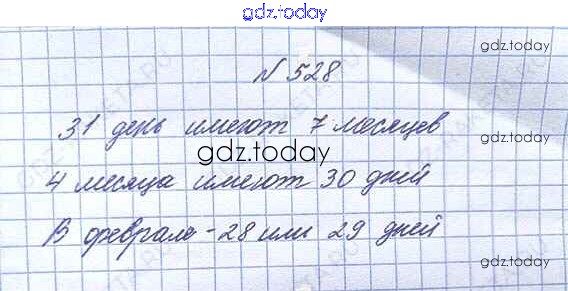 gdz.today
gdz.today
№ 528
31 день имеют 7 месяцев
gdz.today
gdz.today
4 месяца имеют 30 дней
В феврале - 28 или 29 дней
gdz.today